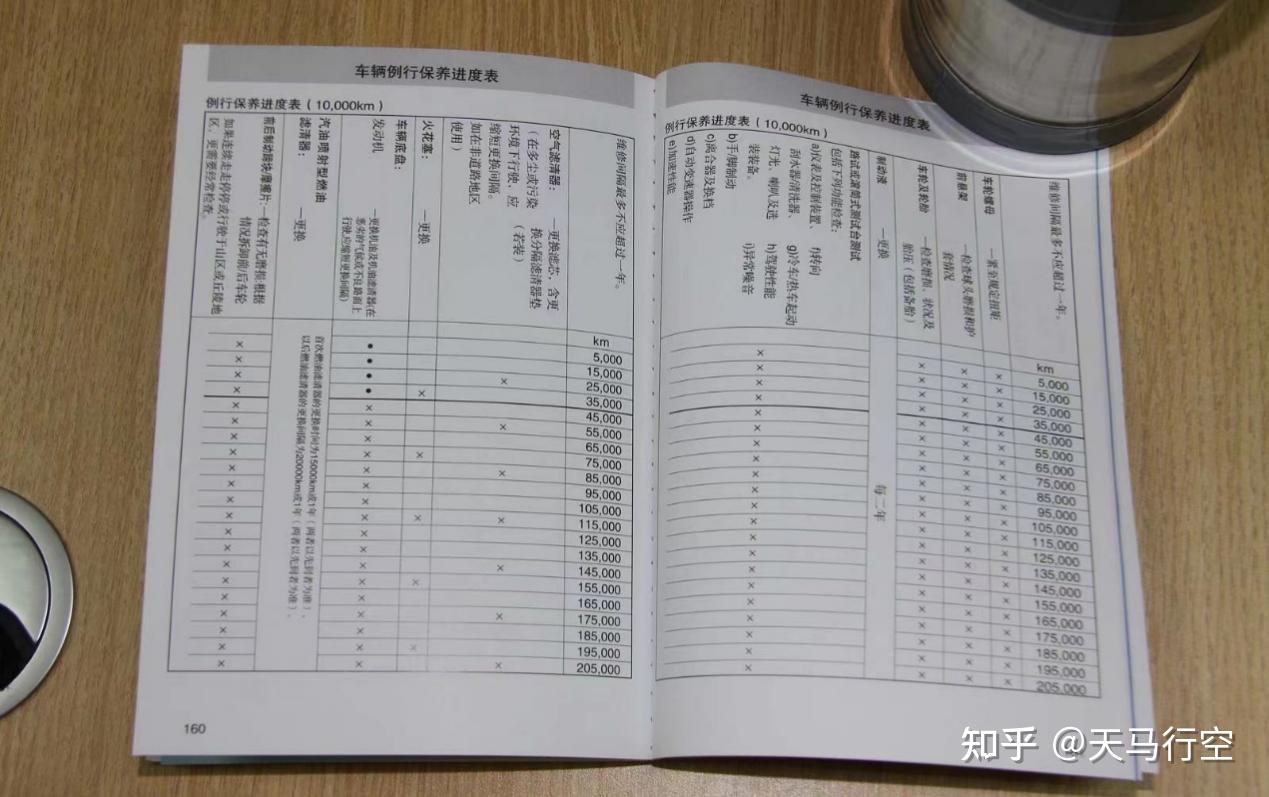 车辆例行保养进度表
例行保养进度表(10,000km)
维修间隔最多不应超过一年。
空气滤清器: —更换滤芯,含更
(在多尘或污染 换分隔滤清器垫
环境下行驶,应 (若装)
缩短更换间隔。
如在非道路地区
使用)
火花塞: —更换
车辆底盘:
发动机 —更换机油及机油滤清器(在
恶劣的气候或不良路面上
行驶,应缩短更换间隔)
汽油喷射型燃油
滤清器: —更换
首次燃油滤清器的更换时间为15000km或1年(两者以先到者为准),
以后燃油滤清器的更换间隔为20000km或1年(两者以先到者为准)。
前后制动蹄块摩擦片:—检查有无磨损,根据
情况拆卸前/后车轮
如果连续走走停停或行驶于山区或丘陵地
区,更需要经常检查。
km
5,000
15,000
25,000 ×
35,000 × ●
45,000
55,000 ×
65,000
75,000 ×
85,000 ×
95,000
105,000
115,000 × ×
125,000
135,000
145,000 ×
155,000 ×
165,000
175,000 ×
185,000
195,000 ×
205,000 ×
160
车辆例行保养进度表
例行保养进度表(10,000km)
维修间隔最多不应超过一年。
车轮螺母 —紧至规定扭矩
前悬架 —检查球头磨损和护
套情况
车轮及轮胎 —检查磨损、状况及
胎压(包括备胎)
制动液 —更换
每二年
路试或滚筒式测试台测试
包括下列功能检查:
a)仪表及控制装置、 f)转向
刮水器/清洗器、 g)冷车/热车起动
灯光、喇叭及选 h)驾驶性能
装装备。 i)异常噪音
b)手/脚制动
c)离合器及换档
d)自动变速器操作
e)加速性能
km
5,000
15,000
25,000
35,000
45,000
55,000
65,000
75,000
85,000
95,000
105,000
115,000
125,000
135,000
145,000
155,000
165,000
175,000
185,000
195,000
205,000
知乎 @天马行空